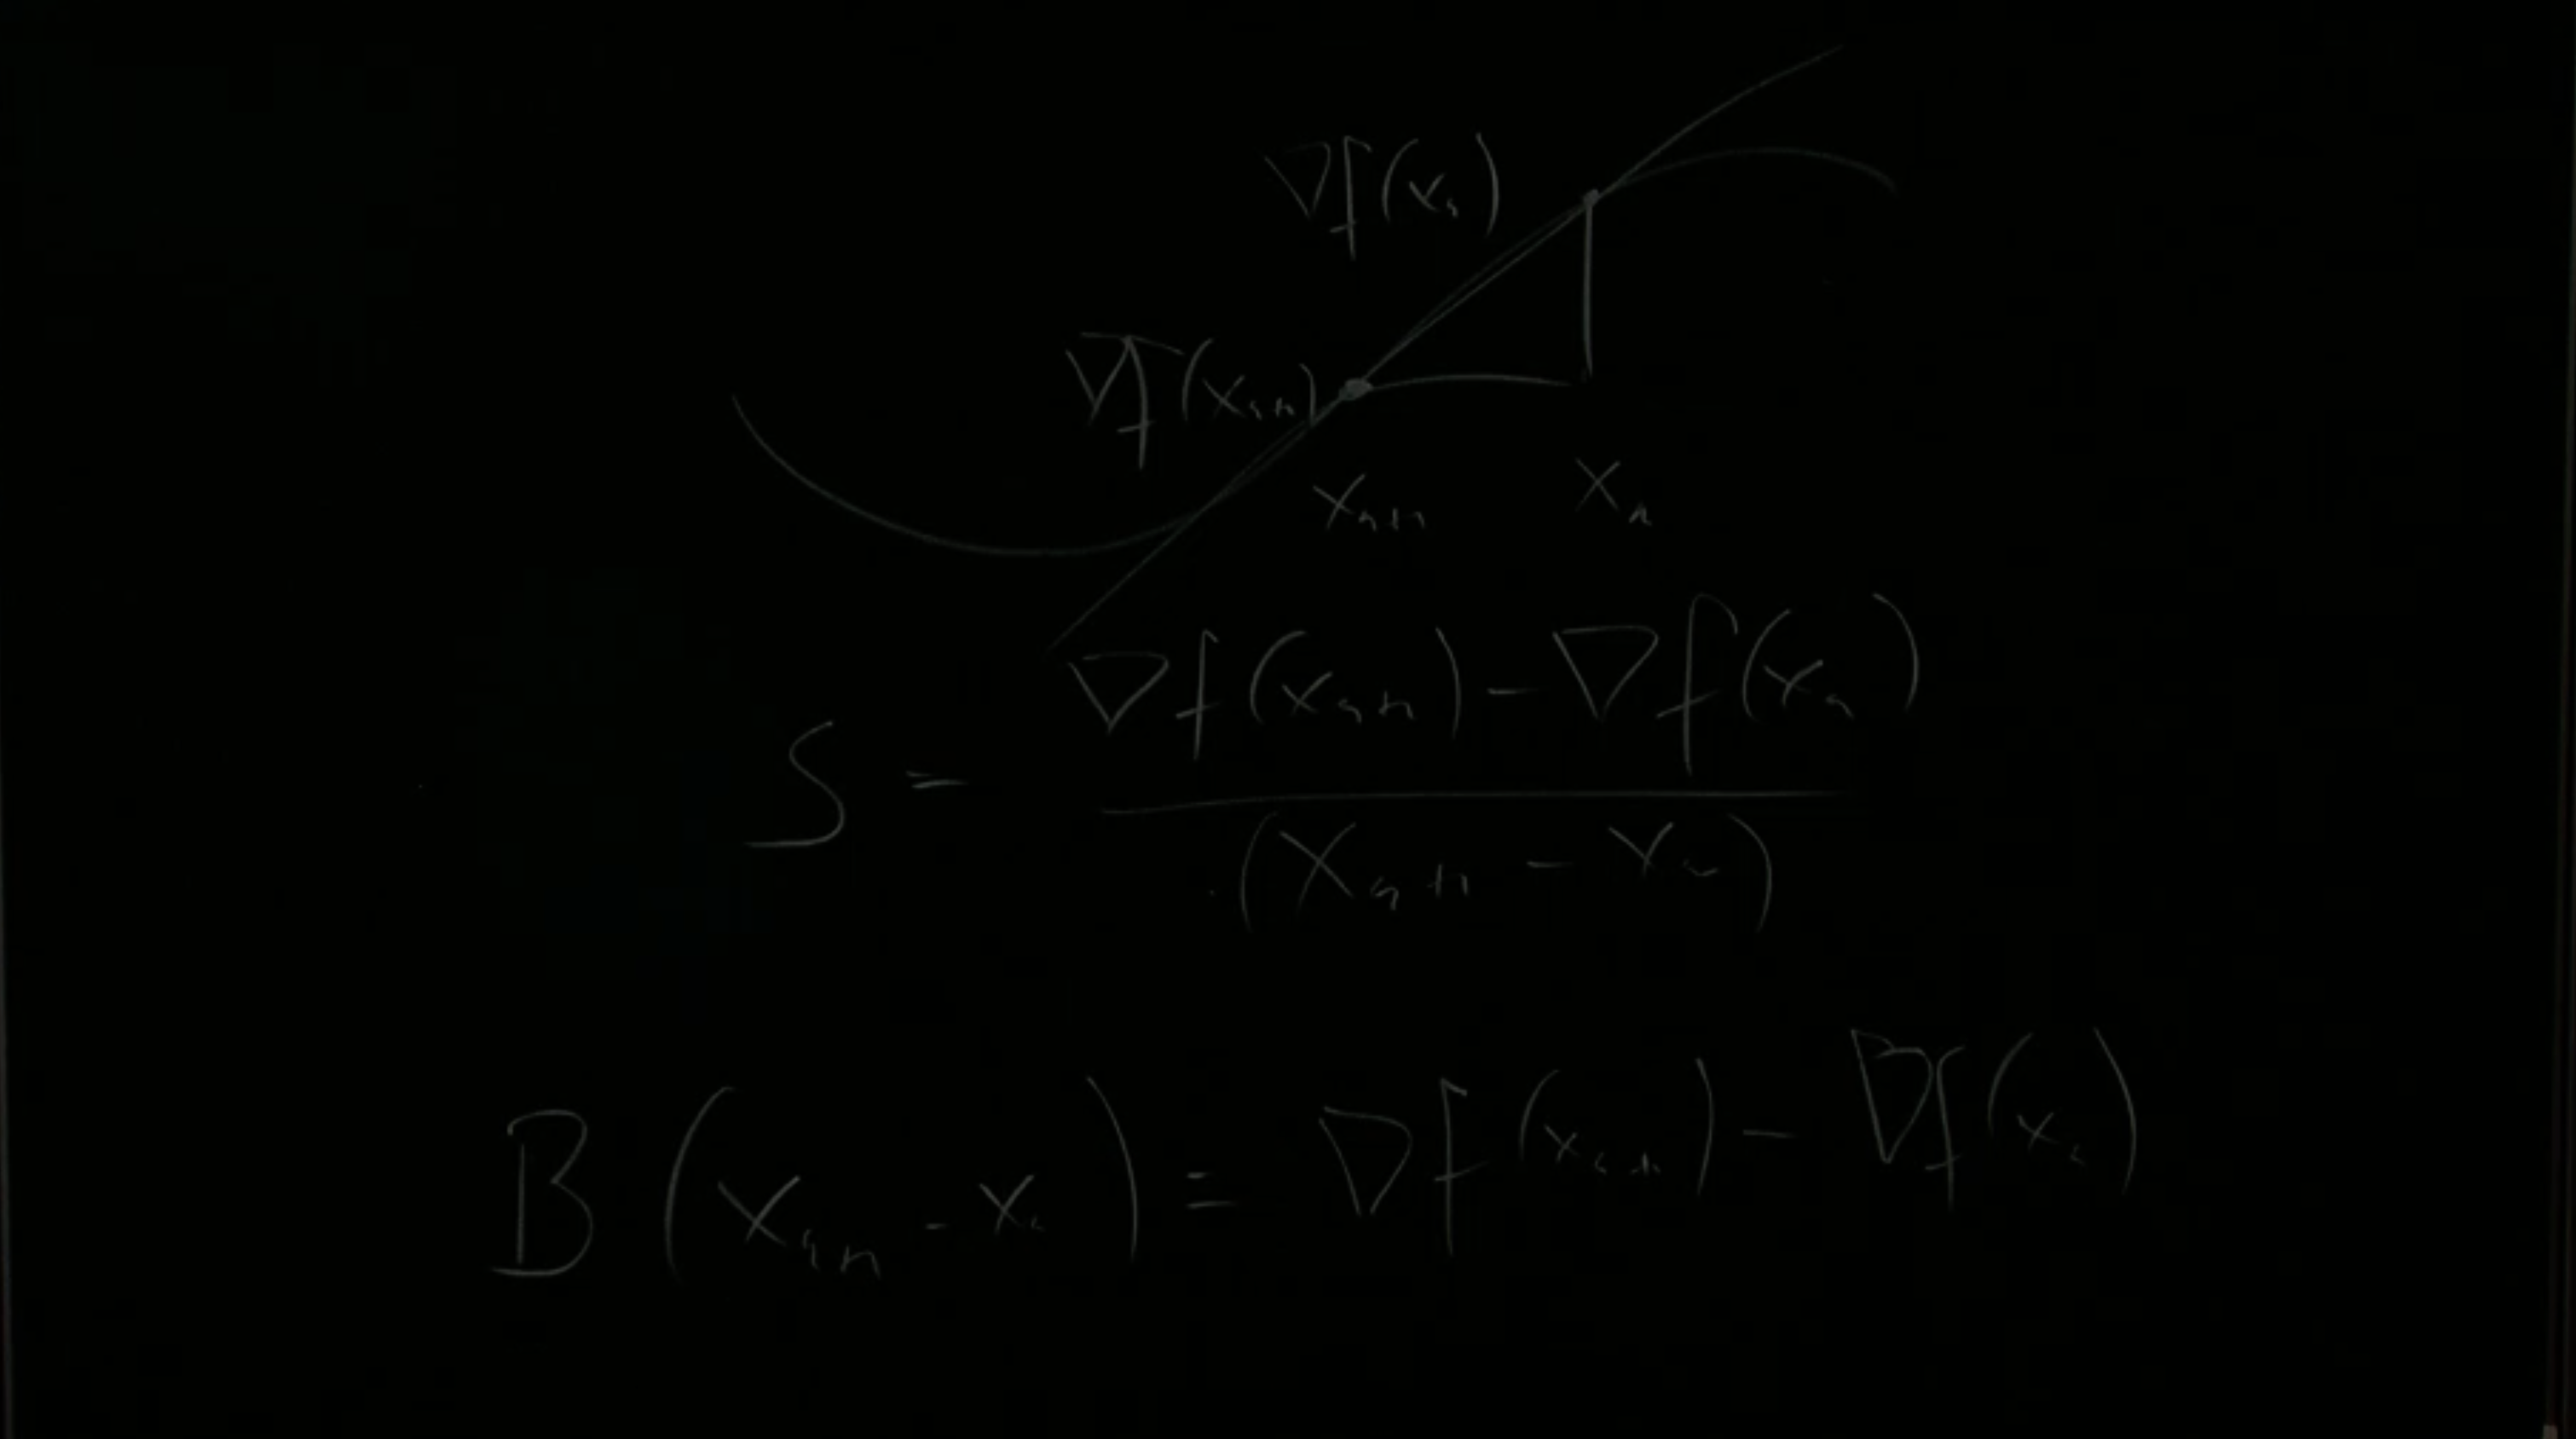 ∇f(xₙ)
∇f(xₙ₊₁)
xₙ₊₁ xₙ
S = (∇f(xₙ₊₁) - ∇f(xₙ)) / (xₙ₊₁ - xₙ)
B(xₙ₊₁ - xₙ) = ∇f(xₙ₊₁) - ∇f(xₙ)